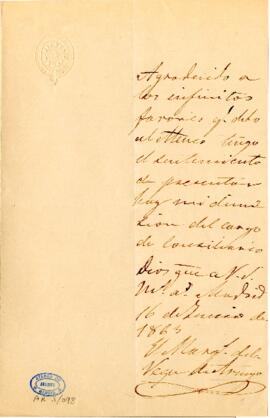 Agradecido a
los infinitos
favores q.e debo
al Ateneo tengo
el sentimiento
de presentar
hoy mi dimi-
sion del cargo
de Consiliario
Dios gue a V. S.
m.s a.s Madrid
16 de Enero de
1863
El Marq.s de la
Vega de Armijo
AR 3/098